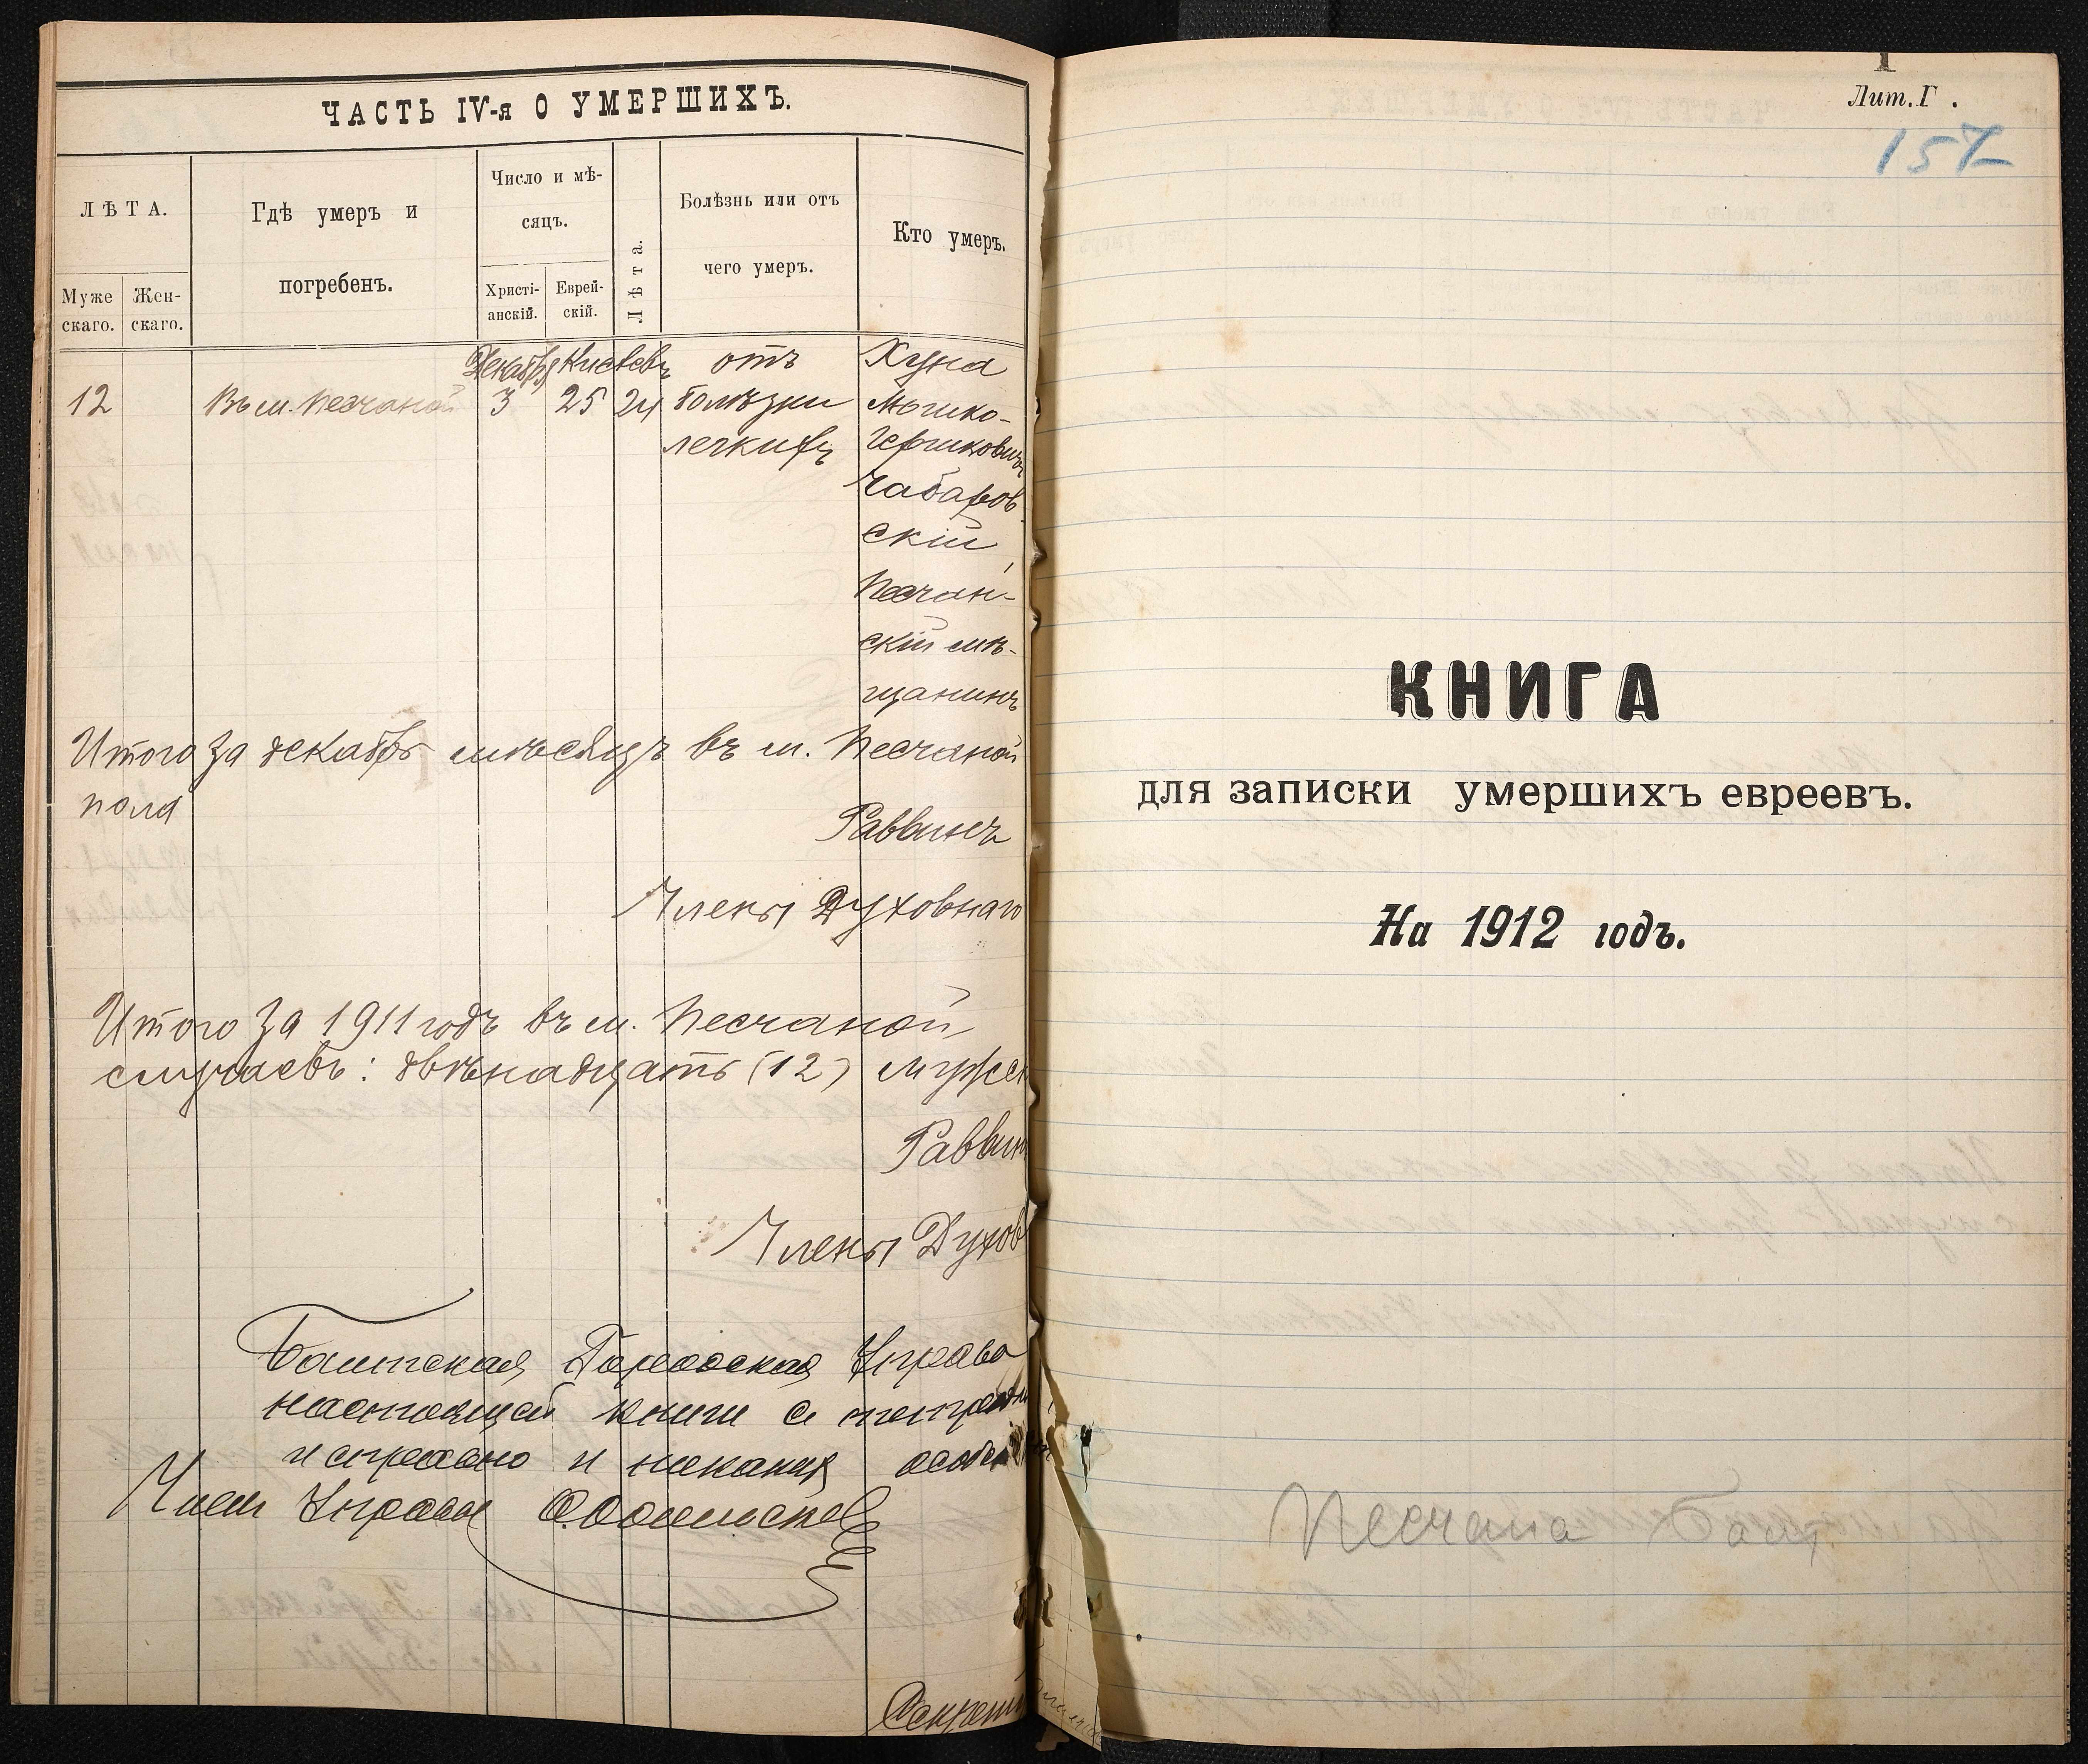 ЧАСТЬ IV-я О УМЕРШИХЪ.
ЛѢТА.
Муже
скаго.
Жен-
скаго.
Гдѣ умеръ и
погребенъ.
Число и мѣ-
сяцъ.
Христі-
анскій.
Еврей-
скій.
Лѣта.
Болѣзнь или отъ
чего умеръ.
Кто умеръ.
Декабря Кислевъ отъ Хуна
12 Въ м. Песчаной 3 25 24 болѣзни Мошко-
легкихъ Гершковичъ
Чабаров
скій,
Песчан-
скій мѣ-
щанинъ
Итого за декабрь мѣсяцъ въ м. Песчаной
пола
Раввинъ
Члены Духовнаго
Итого за 1911 годъ въ м. Песчаной
случаевъ: двѣнадцать (12) мужск
Раввин
Члены Духов
Балтская Городская Управа
настоящей книги
исправно и никакихъ
Членъ Управы
Секрет
Лит. Г.
157
КНИГА
для записки умершихъ евреевъ.
На 1912 годъ.
Песчана Балт.